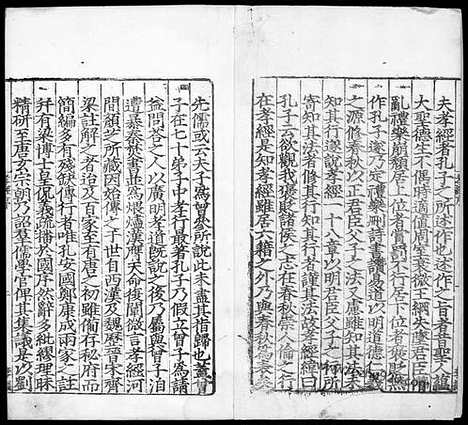 夫孝經者孔子之所述作也述作之旨者昔聖人蘊
大聖德生不偶時適值周室衰微王綱失墜君臣僭
亂禮樂崩頹居上位者賞罰不行居下位者褒貶無
作孔子遂乃定禮樂刪詩書讚易道以明道德仁義
之源修春秋以正君臣父子之法又慮雖知其法未
知其行遂說孝經一十八章以明君臣父子之行所
寄知其法者修其行知其行者謹其法故孝經緯曰
孔子云欲觀我褒貶諸侯之志在春秋崇人倫之行
在孝經是知孝經雖居六籍之外乃與春秋為表矣
先儒或云夫子為曾參所說此未盡其指歸也蓋曾
子在七十弟子中孝行最著孔子乃假立曾子為請
益問答之人以廣明孝道既說之後乃屬與曾子洎
遭暴秦焚書並為煨燼漢膺天命復闡微言孝經河
間顏芝所藏因始傳之于世自西漢及魏歷晉宋齊
梁註解之者迨及百家至有唐之初雖備存祕府而
簡編多有殘缺傳行者唯孔安國鄭康成兩家之註
并有梁博士皇侃義疏播於國序然辭多紕繆理昧
精研至唐玄宗朝乃詔羣儒學官俾其集議是以劉